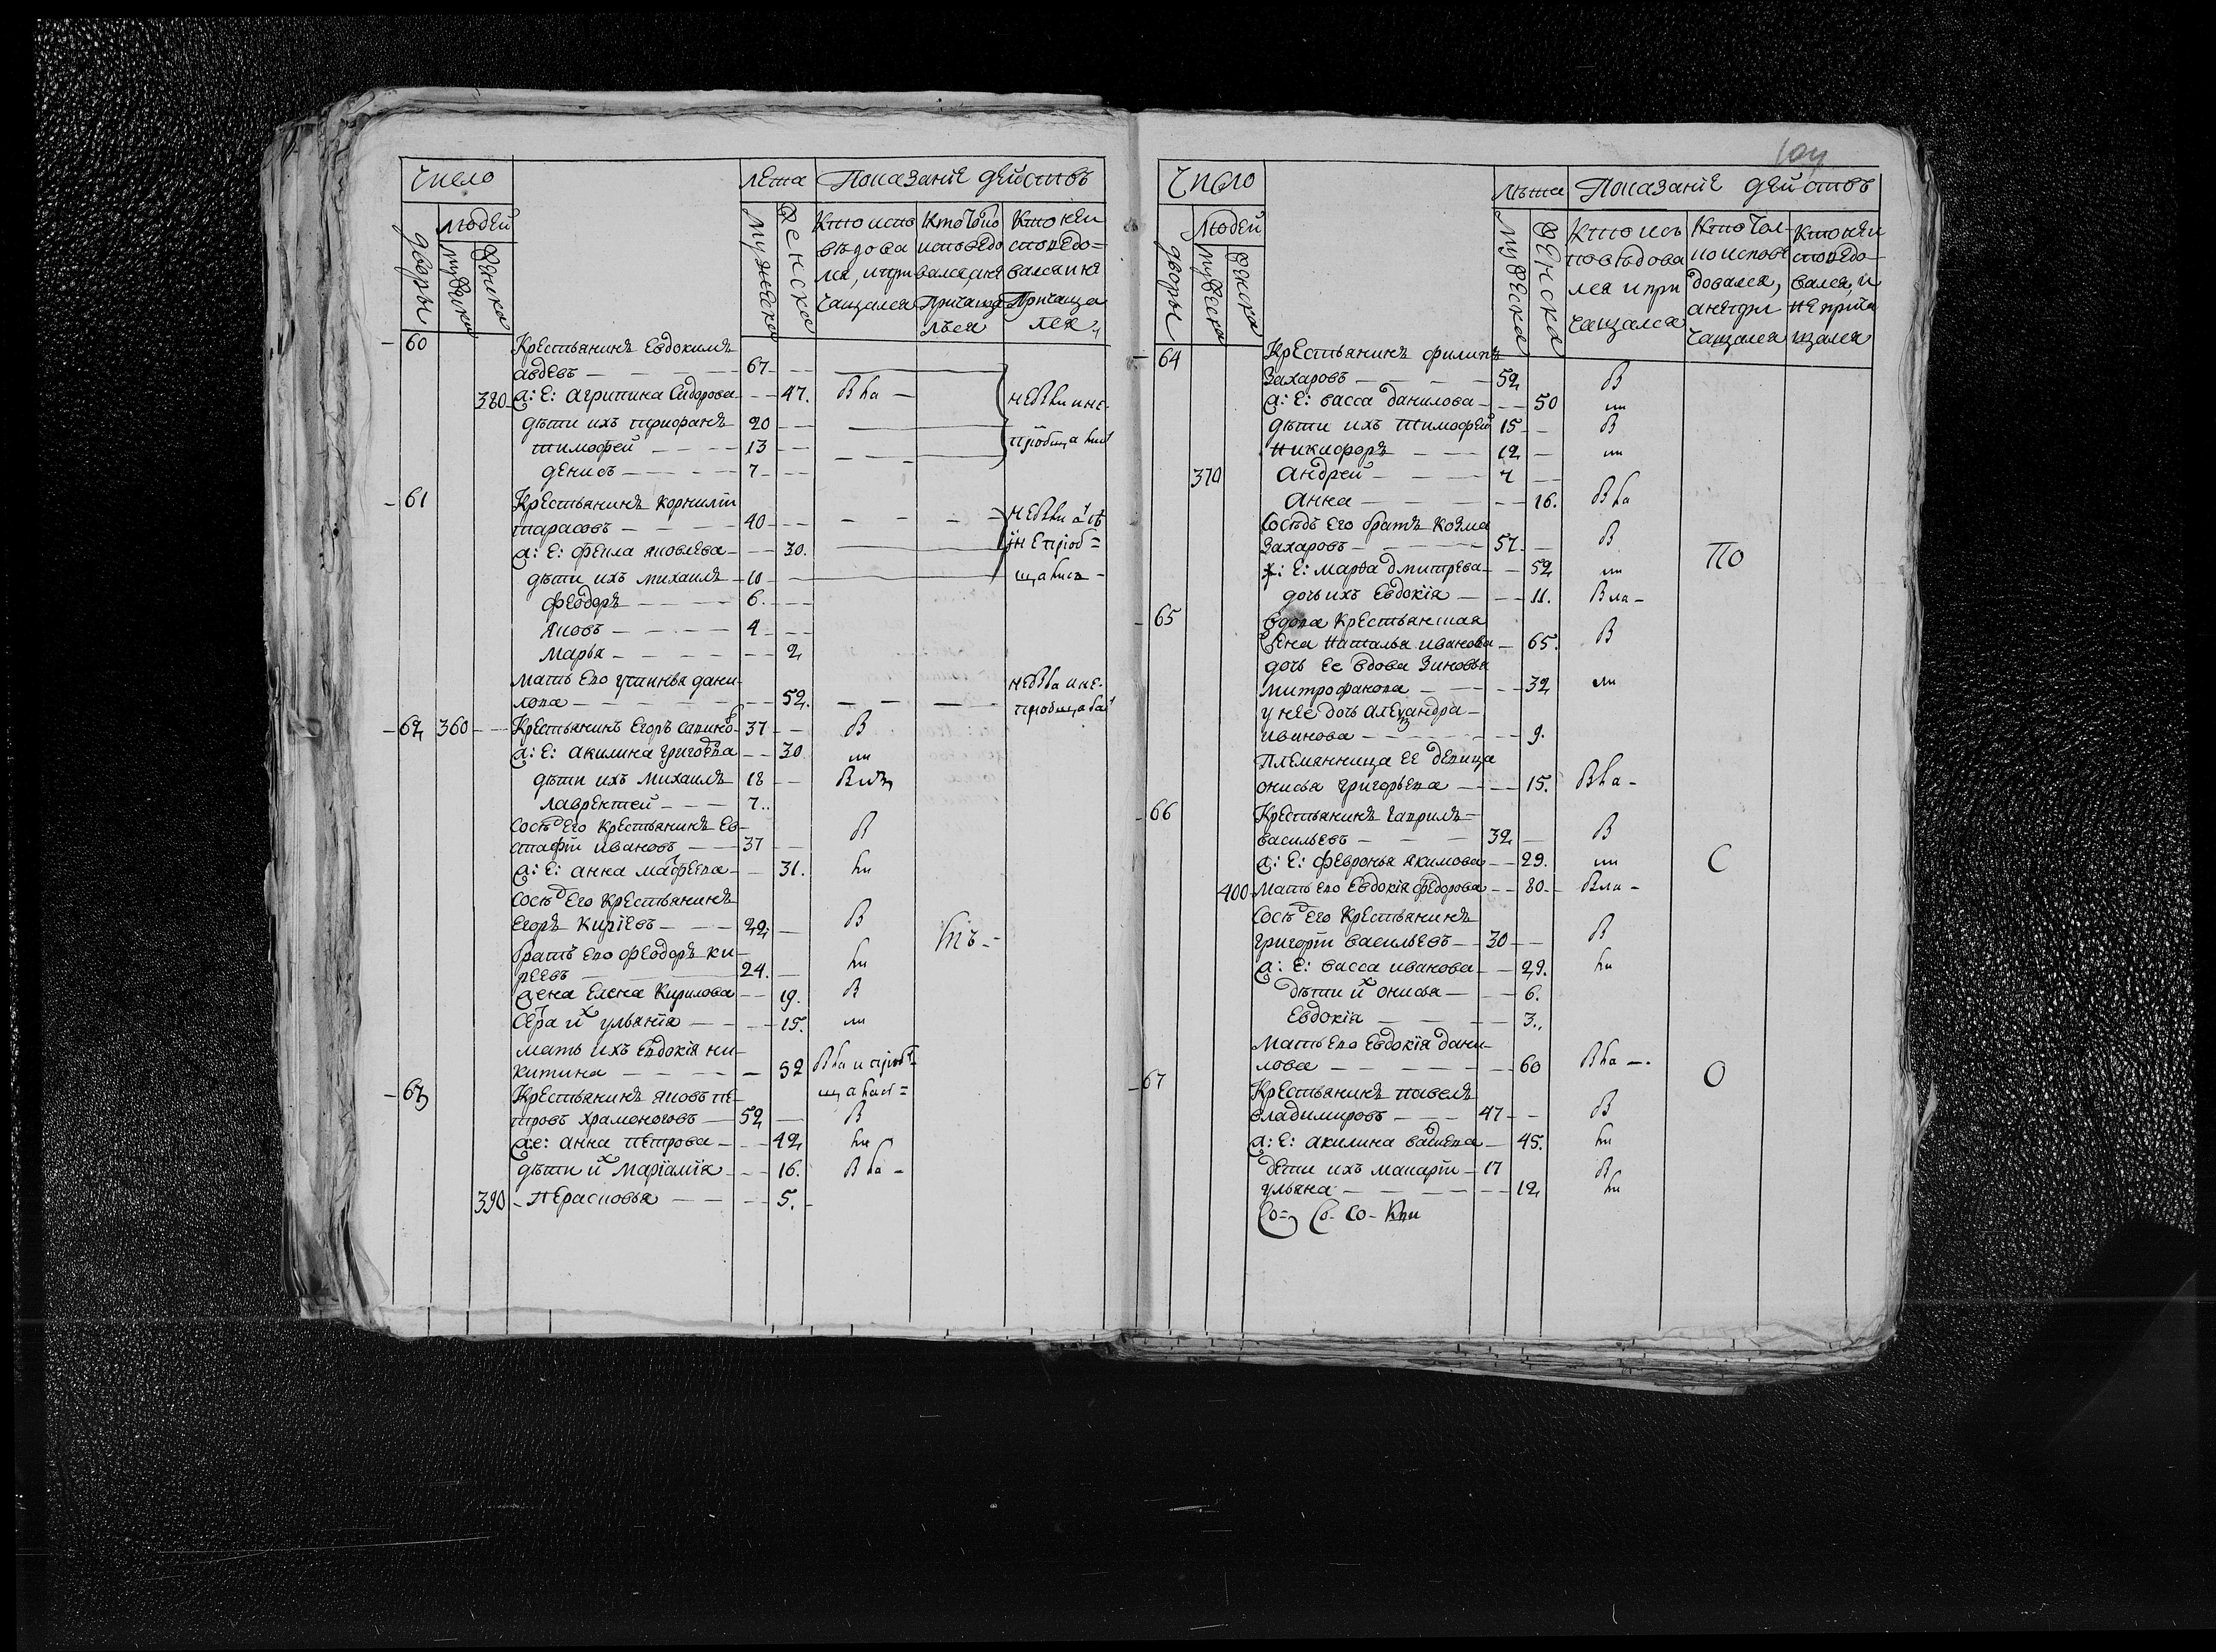 число
лета Показанїе действъ
людей
дворы
мужеска
женска
мужеска
женска
Кто испо
ведова
лся, и при
чащался
Кто токо
исповедо
вался, а не
Причаща
лъся
Кто не и
споведо=
вался и не
Причаща
лся
60 Крестьянинъ Евдокимъ
авдевъ — 67
380 ж: Е: агрипина Сидорова — 47. В ла —
дѣти ихъ трифанъ 20
тимофей — 13
денисъ — 7
61 Крестьянинъ корнилїи
тарасовъ — 40
ж: Е: фекла яковлева — 30.
дѣти ихъ михаилъ 10
феодоръ — 6.
яковъ — 4
марья — 2
мать Его устинья дани
лова — 52.
62 360 Крестьянинъ Егоръ савино 37 В
ж: Е: акилина григоева 30
дѣти ихъ михаилъ 18
лаврентей — 7..
сосѣд Его крестьянинъ Ев
стафїи ивановъ — 37 В
ж: Е: анна матфеева — 31. ли
сосѣд Его Крестьянинъ
Егоръ кирїевъ — 22; В
братъ Его феодоръ ки
реевъ — 24. ли
жена Елена Кирилова — 19. В
сестра их ульянїа — 15. ли
мать ихъ Евдокїя ни
китина — 52 В ла и прїоб
щалась =
63 Крестьянинъ яковъ пе
тровъ храмоноговъ — 52 В
ж: е: анна петрова — 42 ли
дѣти их марїамїя — 16. В ла —
390 Перасковья — 5.
104
число
лѣта Показанїе действъ
людей
дворы
мужеска
женска
мужеска
женска
Кто ис
поведова
лся и при
чащался
Кто тол
ко испове
довался,
а не при
чащался
Кто не и
споведо
вался, и
не прича
щался
64 Крестьянинъ филипъ
Захаровъ — 52 В
ж: Е: васса данилова — 50 ли
дѣти ихъ тимофей 15 В
никифоръ — 12 ли
370 андрей — 4
анна — 16. В ла
Сосѣдъ Его братъ козма
Захаровъ — 57. В
ж: Е: марѳа дмитрева — 52 ли
дочь ихъ Евдокїа — 11. В ла —
По
65 вдова крестьянская
жена наталья иванова — 65. В
дочь Ее вдова Зиновья
митрофанова — 32 ли
у нее дочь александра
иванова — 9.
Племянница Ее девица
онисья григорьева — 15. В ла —
66 Крестьянинъ гаврилъ =
васильевъ — 32 В
ж: Е: февронья якимова — 29. ли
С
400 Мать Его Евдокїя федорова — 80. В ла —
сосѣд Его крестьянинъ
григорїи васильевъ — 30 В
ж: Е: васса иванова — 29. ли
дѣти их онисья — 6.
Евдокїа — 3..
мать Его Евдокїа дани
лова — 60 В ла —.
О
67 Крестьянинъ павелъ
владимировъ — 47 В
ж: Е: акилина — 45. ли
дети ихъ макарїи — 17 В
ульяна — 12 ли